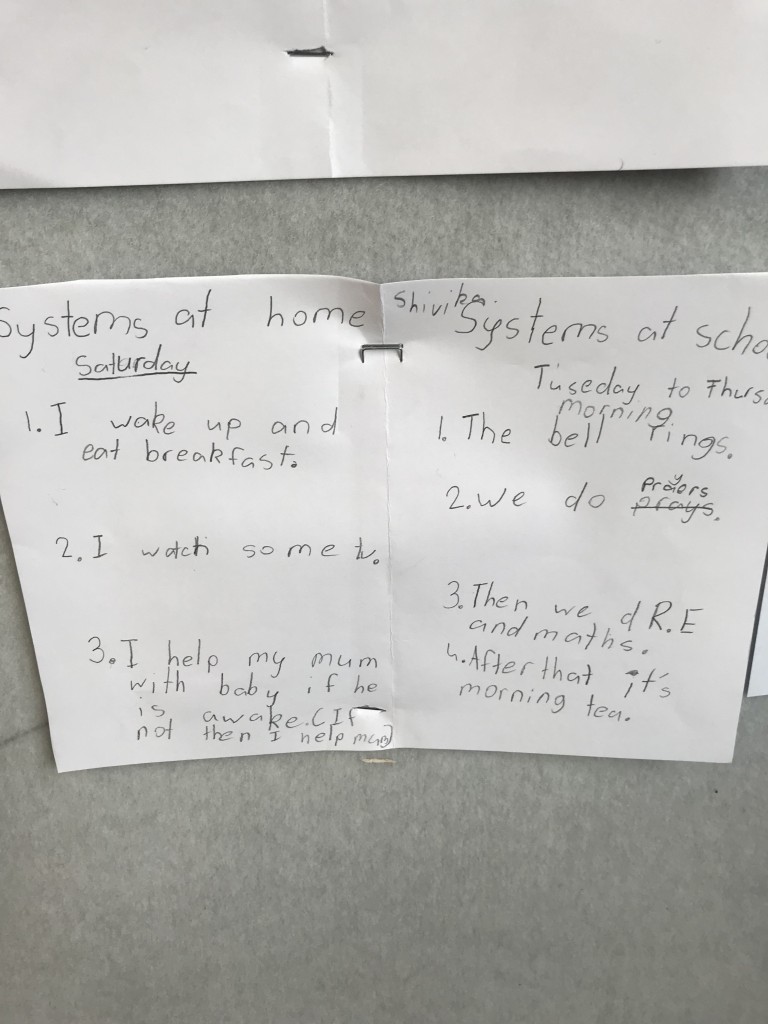 Systems at home
Saturday
1. I wake up and
eat breakfast.
2. I watch some tv.
3. I help my mum
with baby if he
is awake. (If
not then I help mum)
Shivika.
Systems at scho
Tuseday to Thurs
morning
1. The bell rings.
prayors
2. We do prays.
3. Then we d R.E
and maths.
4. After that it's
morning tea.